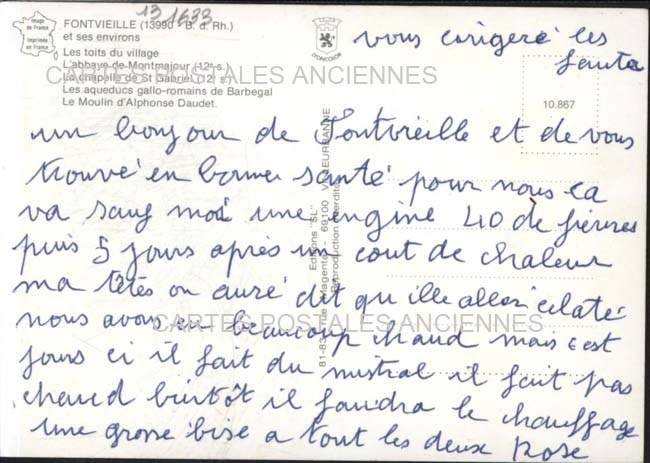 13 1633
Image
de France
Imprimée
en France
FONTVIEILLE (13990 - B. d. Rh.)
et ses environs
Les toits du village
L'abbaye de Montmajour (12e s.)
La chapelle de St Gabriel (12e s.)
Les aqueducs gallo-romains de Barbegal
Le Moulin d'Alphonse Daudet.
CARTES POSTALES ANCIENNES
10.867
Editions "SL"
81-83, rue Magenta - 69100 VILLEURBANNE
Reproduction interdite
vous corigeré les
fautes
un bonjour de Fontvieille et de vous
trouvé en bonne santé pour nous ca
va sauf moi une engine 40 de fièvres
puis 5 jours après un cout de chaleur
ma têtes on auré dit qu'ille allai éclaté
nous avons eu beaucoup chaud mais c est
CARTES POSTALES ANCIENNES
jours ci il fait du mistral il fait pas
chaud bintôt il faudra le chauffage
une grosse bise a tout les deux Rose